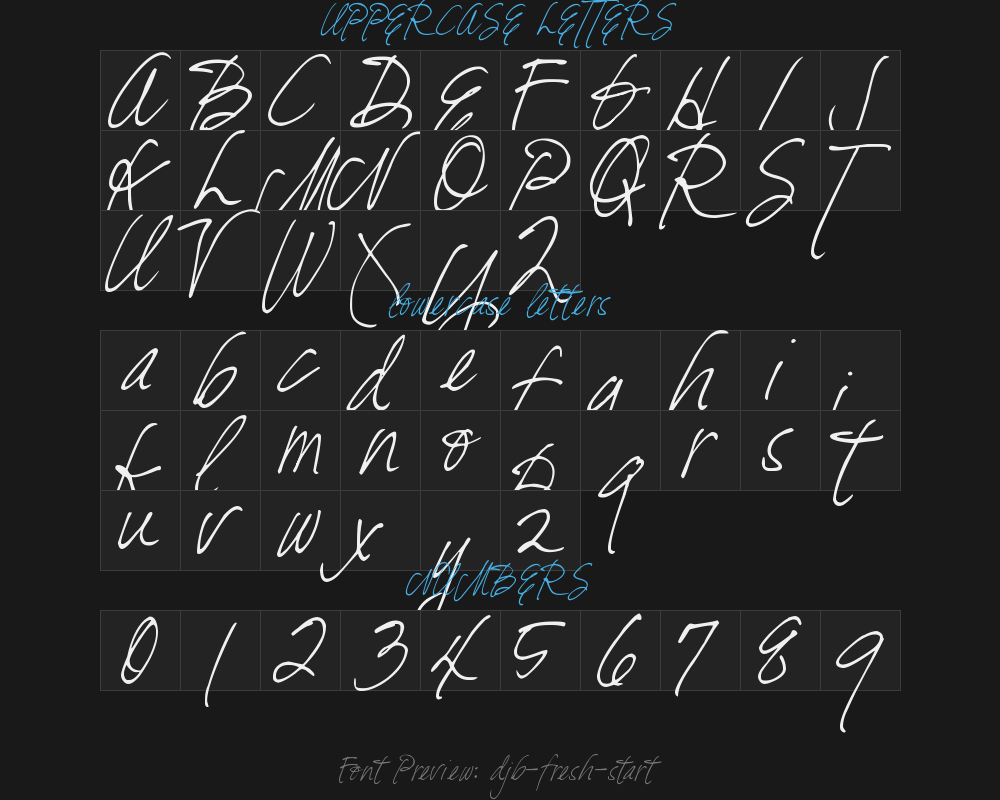 UPPERCASE LETTERS
A B C D E F G H I J
K L M N O P Q R S T
U V W X Y Z
lowercase letters
a b c d e f g h i j
k l m n o p q r s t
u v w x y z
NUMBERS
0 1 2 3 4 5 6 7 8 9
Font Preview: djb-fresh-start